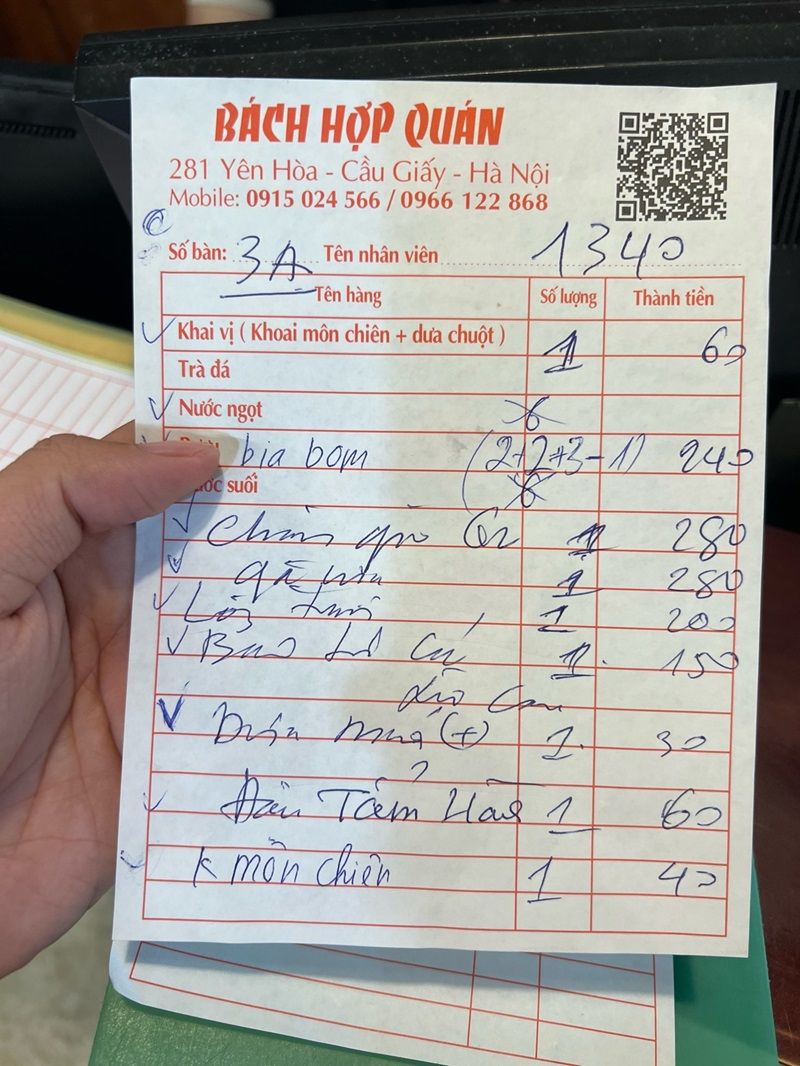 BÁCH HỢP QUÁN
281 Yên Hòa - Cầu Giấy - Hà Nội
Mobile: 0915 024 566 / 0966 122 868
Số bàn: 3A Tên nhân viên 1340
Tên hàng Số lượng Thành tiền
Khai vị ( Khoai môn chiên + dưa chuột ) 1 60
Trà đá
Nước ngọt
bia bom (2+2+3-1) 240
suối
1 280
gà 1 280
1 200
Bao tử cá 1 150
Dưa (+) 1 30
Đậu Tẩm Hành 1 60
K môn chiên 1 40